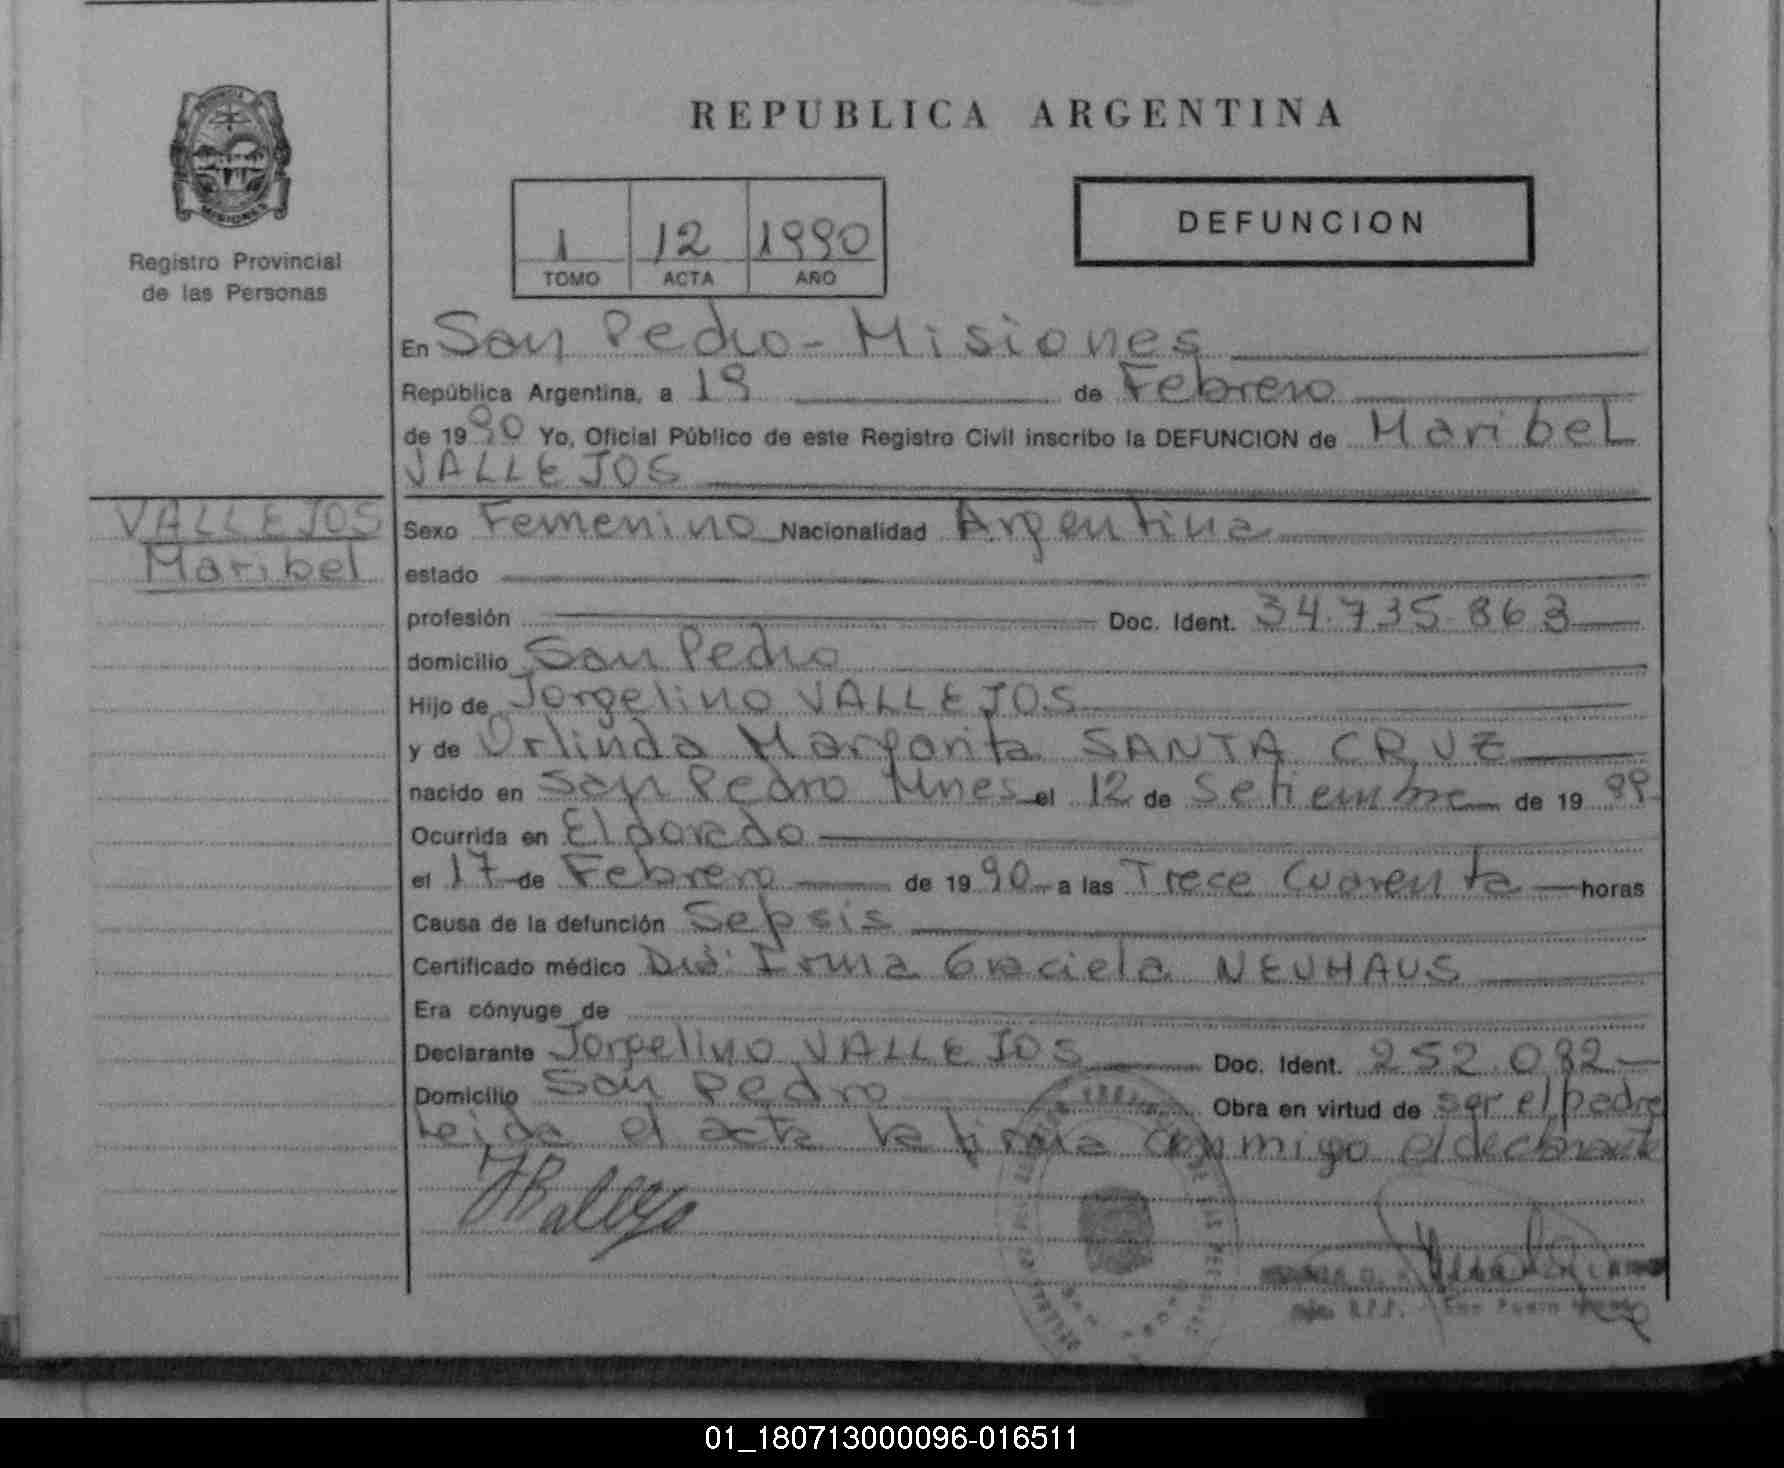 REPUBLICA ARGENTINA
PROVINCIA
MISIONES
Registro Provincial
de las Personas
1 12 1990
TOMO ACTA AÑO
DEFUNCION
En San Pedro - Misiones
República Argentina, a 19 de Febrero
de 1990 Yo, Oficial Público de este Registro Civil inscribo la DEFUNCION de Maribel
VALLEJOS
VALLEJOS
Maribel
Sexo Femenino Nacionalidad Argentina
estado
profesión Doc. Ident. 34.735.863
domicilio San Pedro
Hijo de Jorgelino VALLEJOS
y de Orlinda Margarita SANTA CRUZ
nacido en San Pedro Mnes el 12 de Setiembre de 19 89
Ocurrida en Eldorado
el 17 de Febrero de 19 90 a las Trece Cuarenta horas
Causa de la defunción Sepsis
Certificado médico Irma Graciela NEUHAUS
Era cónyuge de
Declarante Jorgelino VALLEJOS Doc. Ident. 252.082
Domicilio San Pedro Obra en virtud de ser el padre
Leida el acta la firma conmigo el declarante
01_180713000096-016511